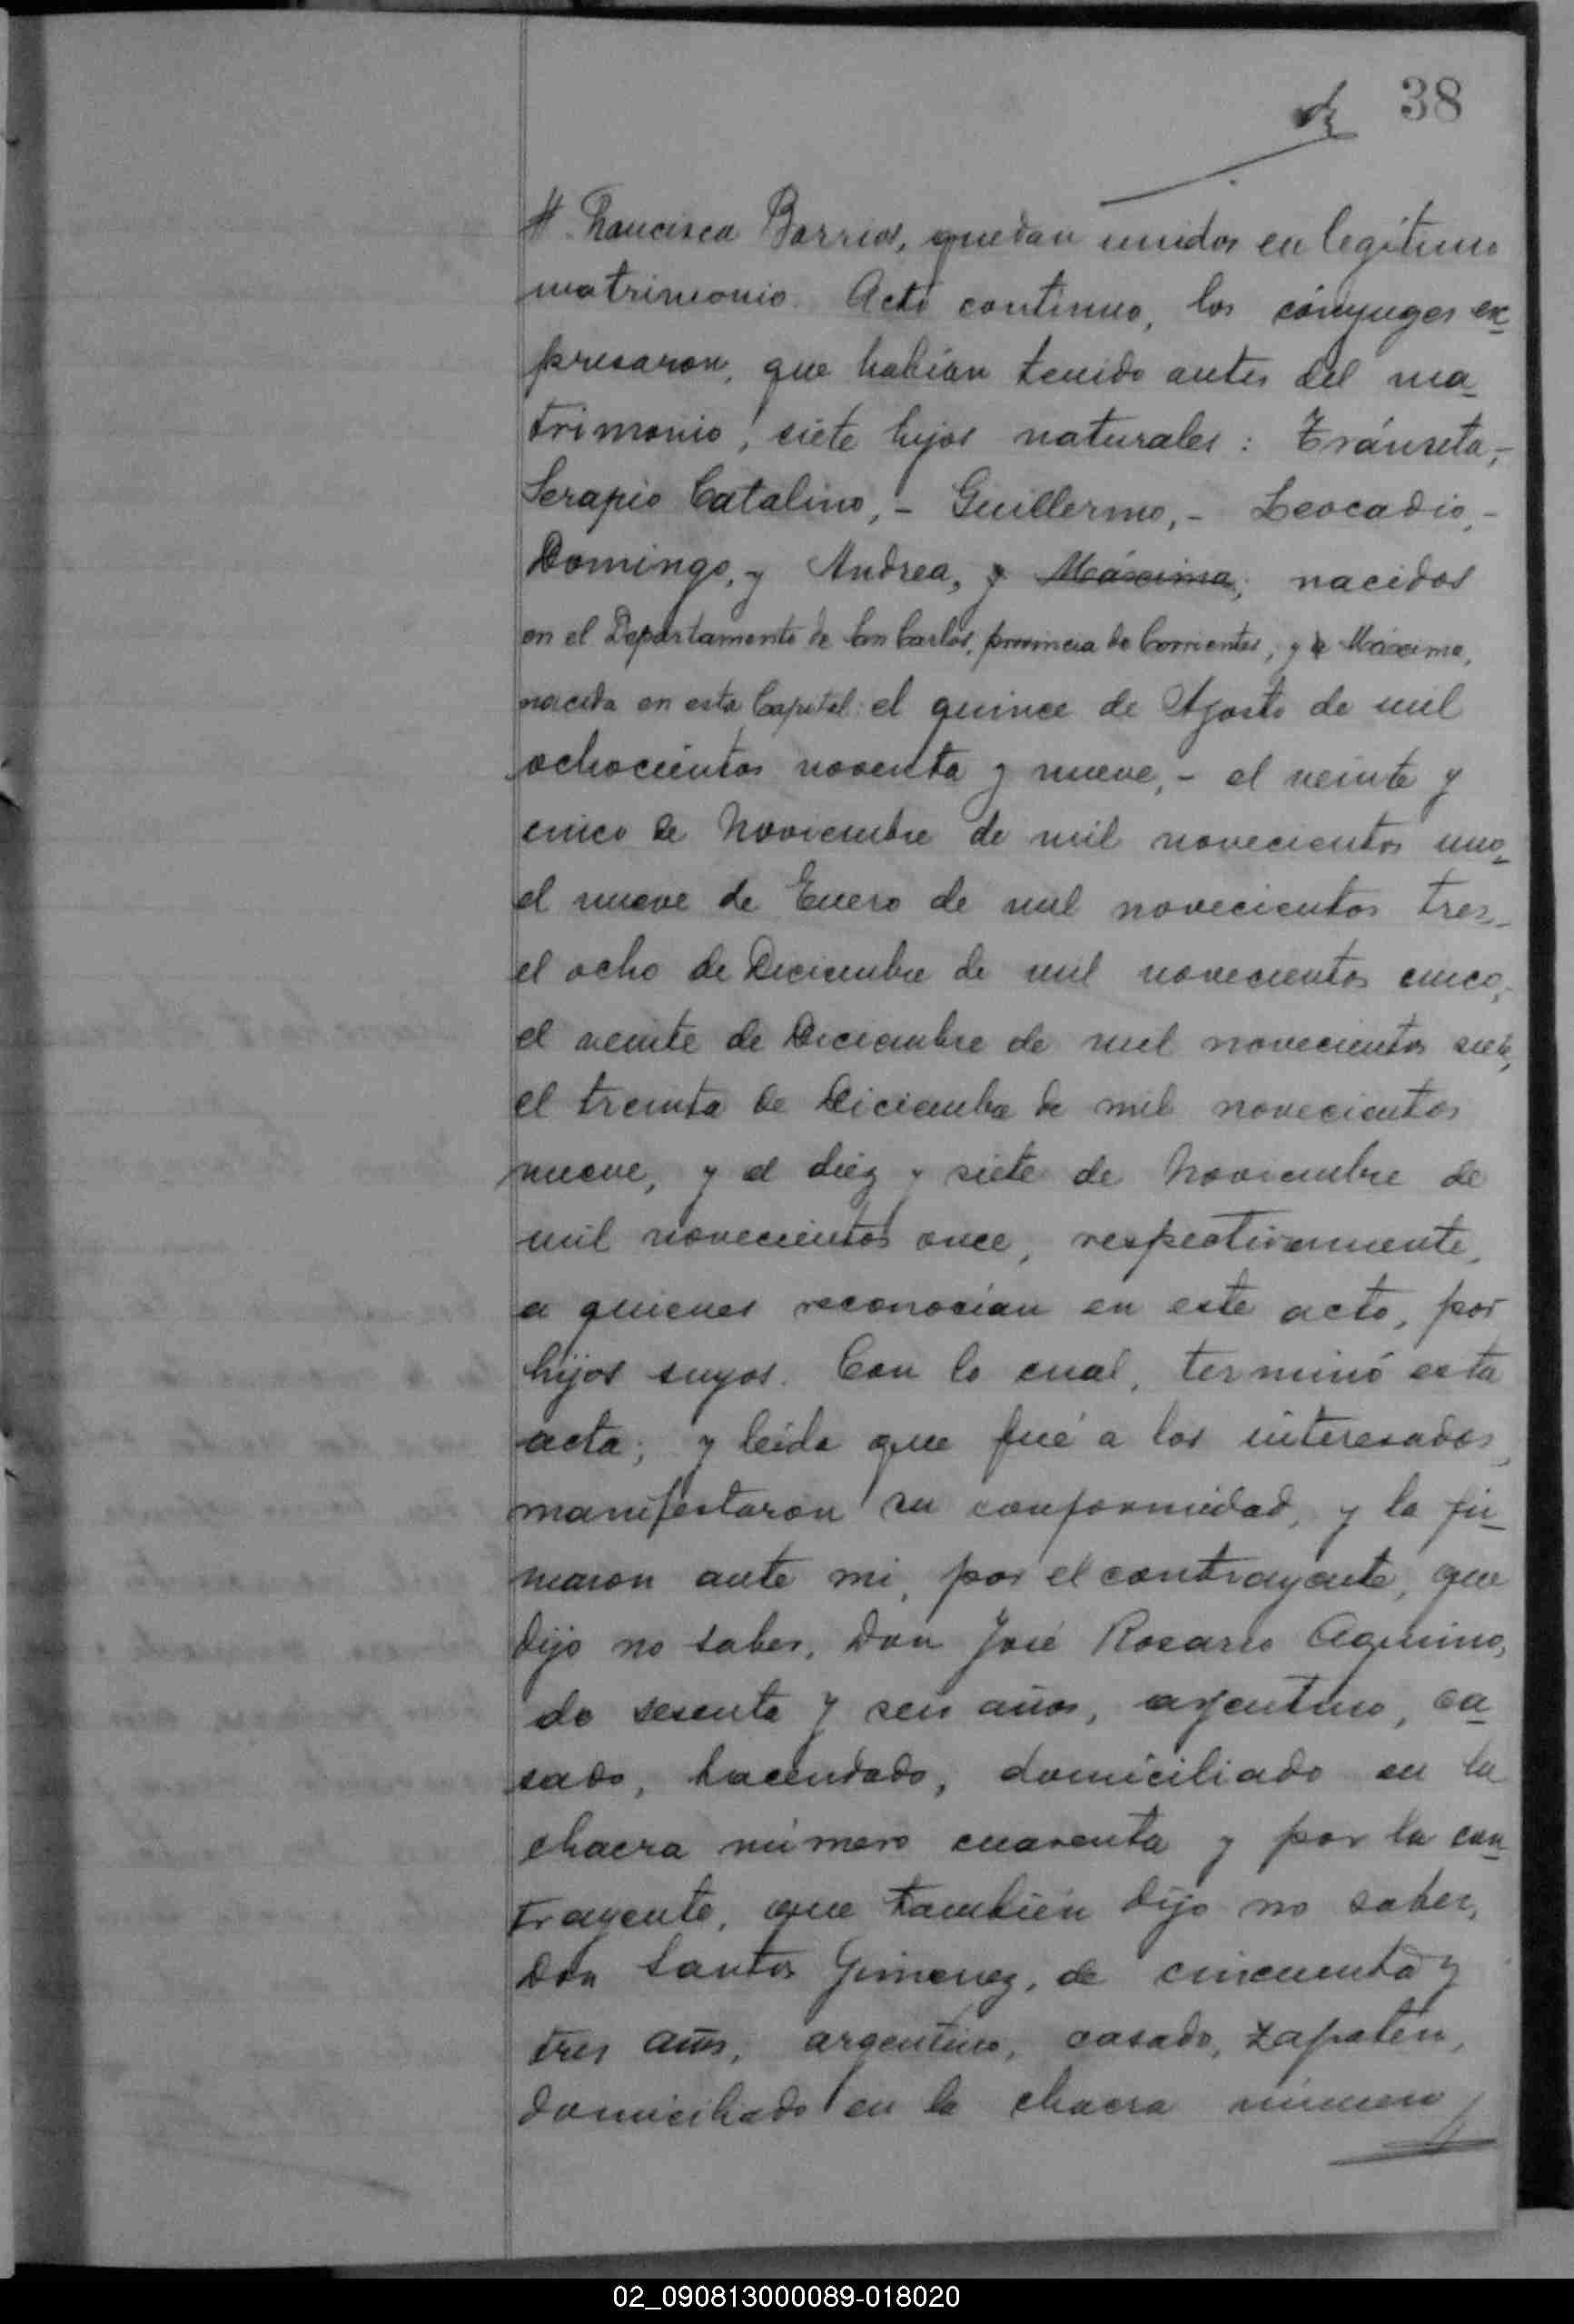 38
Francisca Barrios, quedan unidos en legítimo
matrimonio. Acto continuo, los cónyuges ex-
presaron, que habían tenido antes del ma-
trimonio, siete hijos naturales: Tránsita,-
Serapio Catalino,- Guillermo,- Leocadio,-
Domingo, y Andrea, y Máxima, nacidos
en el Departamento de San Carlos, provincia de Corrientes, y Máxima,
nacida en esta Capital: el quince de Agosto de mil
ochocientos noventa y nueve,- el veinte y
cinco de Noviembre de mil novecientos uno-
el nueve de Enero de mil novecientos tres-
el ocho de Diciembre de mil novecientos cinco,-
el veinte de Diciembre de mil novecientos siete,
el treinta de Diciembre de mil novecientos
nueve, y el diez y siete de Noviembre de
mil novecientos once, respectivamente,
a quienes reconocían en este acto, por
hijos suyos. Con lo cual, terminó esta
acta; y leída que fué a los interesados,
manifestaron su conformidad, y la fir-
maron ante mi, por el contrayente, que
dijo no saber, Don José Rosario Aquino,
de sesenta y seis años, argentino, ca-
sado, hacendado, domiciliado en la
chacra número cuarenta y por la con-
trayente, que también dijo no saber,
Don Santos Gimenez, de cincuenta y
tres años, argentino, casado, zapatero,
domiciliado en la chacra número
02_090813000089-018020